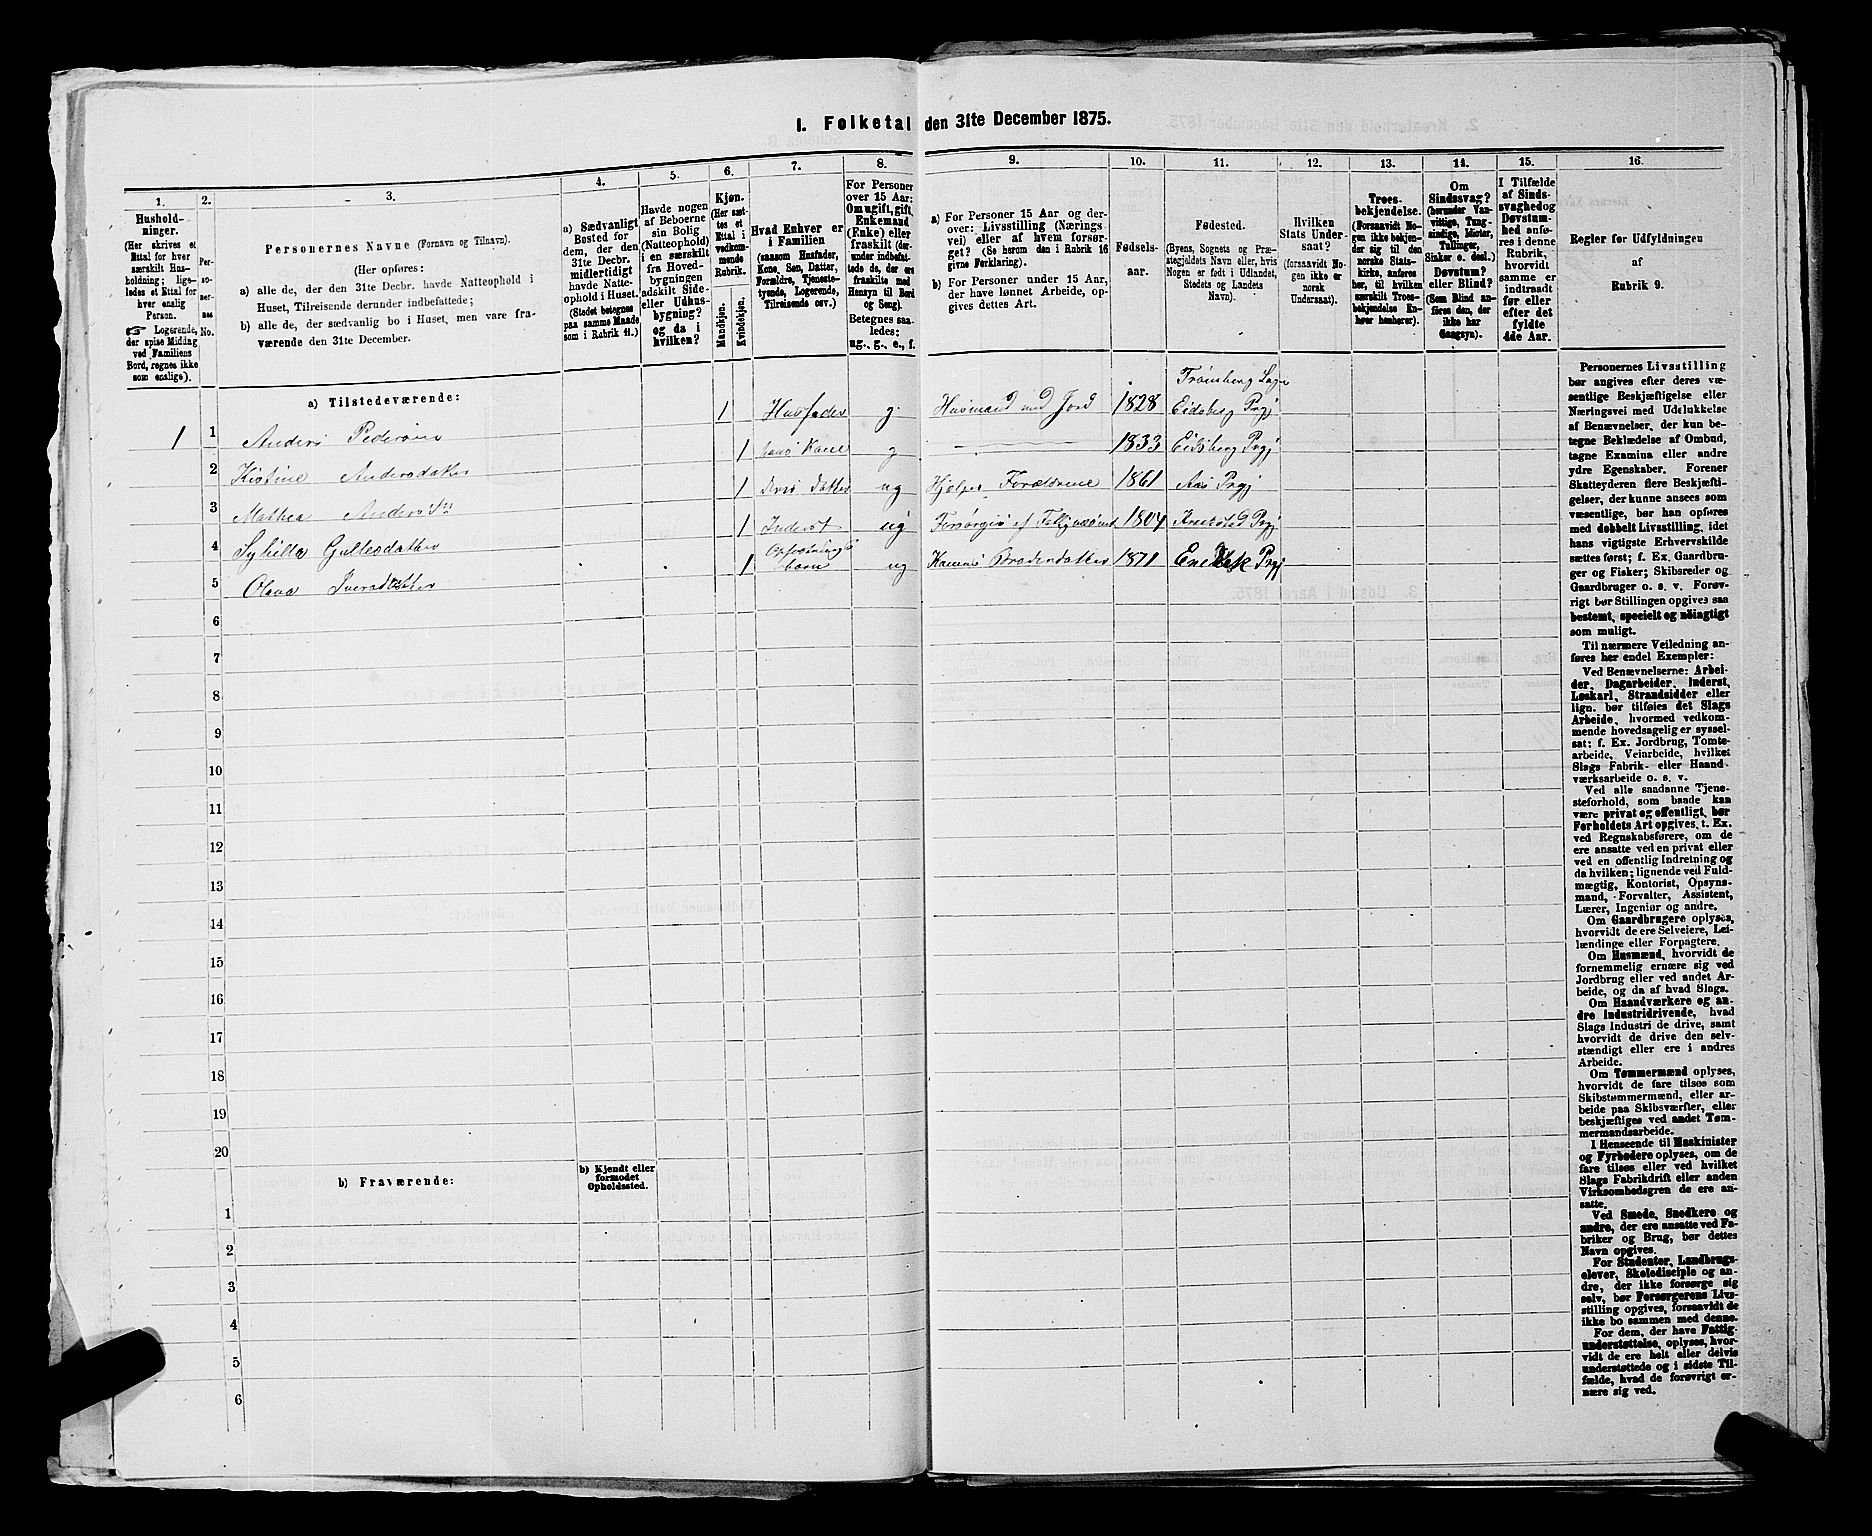 1. Folketal den 31te December 1875.
1. 2. 3. 4. 5. 6. 7. 8. 9. 10. 11. 12. 13. 14. 15. 16.
Hushold-
ninger.
(Her skrives et
Ettal for hver
særskilt Hus-
holdning; lige-
ledes et Ettal for
hver enslig
Person.
☞ Logerende,
der spise Middag
ved Familiens
Bord, regnes ikke
som enslige).
Per-
so-
ner-
nes
No.
Personernes Navne (Fornavn og Tilnavn).
(Her opføres:
a) alle de, der den 31te Decbr. havde Natteophold i
Huset, Tilreisende derunder indbefattede;
b) alle de, der sædvanlig bo i Huset, men vare fra-
værende den 31te December.
a) Sædvanligt
Bosted for
dem, der den
31te Decbr.
midlertidigt
havde Natte-
ophold i Huset.
(Stedet betegnes
paa samme Maade
som i Rubrik 11.)
Havde nogen
af Beboerne
sin Bolig
(Natteophold)
i en særskilt
fra Hoved-
bygningen
adskilt Side-
eller Udhus-
bygning?
og da i
hvilken?
Kjøn.
(Her sæt-
tes et
Ettal i
vedkom-
mende
Rubrik.
Mandkjøn.
Kvindekjøn.
Hvad Enhver er
i Familien
(saasom Husfader,
Kone, Søn, Datter,
Forældre, Tjeneste-
tyende, Logerende,
Tilreisende osv.)
For Personer
over 15 Aar:
Om ugift, gift,
Enkemand
(Enke) eller
fraskilt (der-
under indbefat-
tede de, der ere
fraskilte med
Hensyn til Bord
og Seng).
Betegnes saa-
ledes:
ug., g., e., f.
a) For Personer 15 Aar og der-
over: Livsstilling (Nærings-
vei) eller af hvem forsør-
get? (Se herom den i Rubrik 16
givne Forklaring).
b) For Personer under 15 Aar,
der have lønnet Arbeide, op-
gives dettes Art.
Fødsels-
aar.
Fødested.
(Byens, Sognets og Præ-
stegjeldets Navn eller, hvis
Nogen er født i Udlandet,
Stedets og Landets
Navn).
Hvilken
Stats Under-
saat?
(forsaavidt No-
gen ikke er
norsk
Undersaat).
Troes-
bekjendelse.
(Forsaavidt No-
gen ikke bekjen-
der sig til den
norske Stats-
kirke, anføres
her, til hvilken
særskilt Troes-
bekjendelse En-
hver henhører).
Om
Sindssvag?
(herunder Van-
vittige, Tung-
sindige, Idioter,
Tullinger,
Sinker o. desl.)
Døvstum?
eller Blind?
(Som Blind an-
føres den, der
ikke har
Gangsyn).
I Tilfælde
af Sinds-
svaghed og
Døvstum-
hed anfø-
res i denne
Rubrik,
hvorvidt
samme er
indtraadt
før eller
efter det
fyldte
4de Aar.
Regler for Udfyldningen
af
Rubrik 9.
a) Tilstedeværende:
1 1 Anders Pedersen 1 Husfader g. Husmand med Jord 1828 Trømborg Sogn Eidsberg Prgj
2 Kistine Andersdatter 1 hans Kone g 1833 Eidsberg Prgj
3 Mathea Andersdtr 1 deres Datter ug Hjelper Forældrene 1861 Aas Prgj
4 Syhille Gullesdatter 1 Inderst ug Forsørges af 1804 Prgj
5 Olava Iversdatter 1 Opfostrings barn ug Konens Broderdatter 1871 Enebak Prgj
6
7
8
9
10
11
12
13
14
15
16
17
18
19
20
b) Fraværende:
b) Kjendt eller
formodet
Opholdssted.
1
2
3
4
5
6
Personernes Livsstilling
bør angives efter deres væ-
sentlige Beskjæftigelse eller
Næringsvei med Udelukkelse
af Benævnelser, der kun be-
tegne Beklædelse af Ombud,
tagne Examina eller andre
ydre Egenskaber. Forener
Skatteyderen flere Beskjæfti-
gelser, der kunne ansees som
væsentlige, bør han opføres
med dobbelt Livsstilling, idet
hans vigtigste Erhvervskilde
sættes først; f. Ex. Gaardbru-
ger og Fisker; Skibsreder og
Gaardbruger o. s. v. Forøv-
rigt bør Stillingen opgives saa
bestemt, specielt og nøiagtigt
som muligt.
Til nærmere Veiledning an-
føres her endel Exempler:
Ved Benævnelserne: Arbei-
der, Dagarbeider, Inderst,
Løskarl, Strandsidder eller
lign. bør tilføies det Slags
Arbeide, hvormed vedkom-
mende hovedsagelig er syssel-
sat: f. Ex. Jordbrug, Tomte-
arbeide, Veiarbeide, hvilket
Slags Fabrik- eller Haand-
værksarbeide o. s. v.
Ved alle saadanne Tjene-
steforhold, som baade kan
være privat og offentligt, bør
Forholdets Art opgives, t. Ex.
ved Regnskabsførere, om de
ere ansatte ved en privat eller
ved en offentlig Indretning og
da hvilken; lignende ved Fuld-
mægtig, Kontorist, Opsyns-
mand, Forvalter, Assistent,
Lærer, Ingeniør og andre.
Om Gaardbrugere oplyses,
hvorvidt de ere Selveiere, Lei-
lændinge eller Forpagtere.
Om Husmænd, hvorvidt de
fornemmelig ernære sig ved
Jordbrug eller ved andet Ar-
beide, og da af hvad Slags.
Om Haandværkere og an-
dre Industridrivende, hvad
Slags Industri de drive, samt
hvorvidt de drive den selv-
stændigt eller ere i andres
Arbeide.
Om Tømmermænd oplyses,
hvorvidt de fare tilsøs som
Skibstømmermænd, eller ar-
beide paa Skibsværfter, eller
beskjæftiges ved andet Tøm-
mermandsarbeide.
I Henseende til Maskinister
og Fyrbødere oplyses, om de
fare tilsøs eller ved hvilket
Slags Fabrikdrift eller anden
Virksomhedsgren de ere an-
satte.
Ved Smede, Snedkere og
andre, der ere ansatte ved Fa-
briker og Brug, bør dettes
Navn opgives.
For Studenter, Landbrugs-
elever, Skoledisciple og an-
dre, der ikke forsørge sig
selv, bør Forsørgerens Livs-
stilling opgives, forsaavidt de
ikke bo sammen med denne.
For dem, der have Fattig-
understøttelse, oplyses, hvor-
vidt de ere helt eller delvis
understøttede og i sidste Til-
fælde, hvad de forøvrigt er-
nære sig ved.